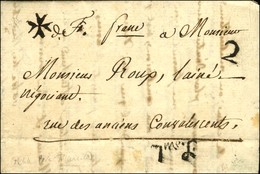 de Fr. franc a Monsieur
2
Monsieur Roux, l'ainé
négociant.
rue des anciens Convalescents,